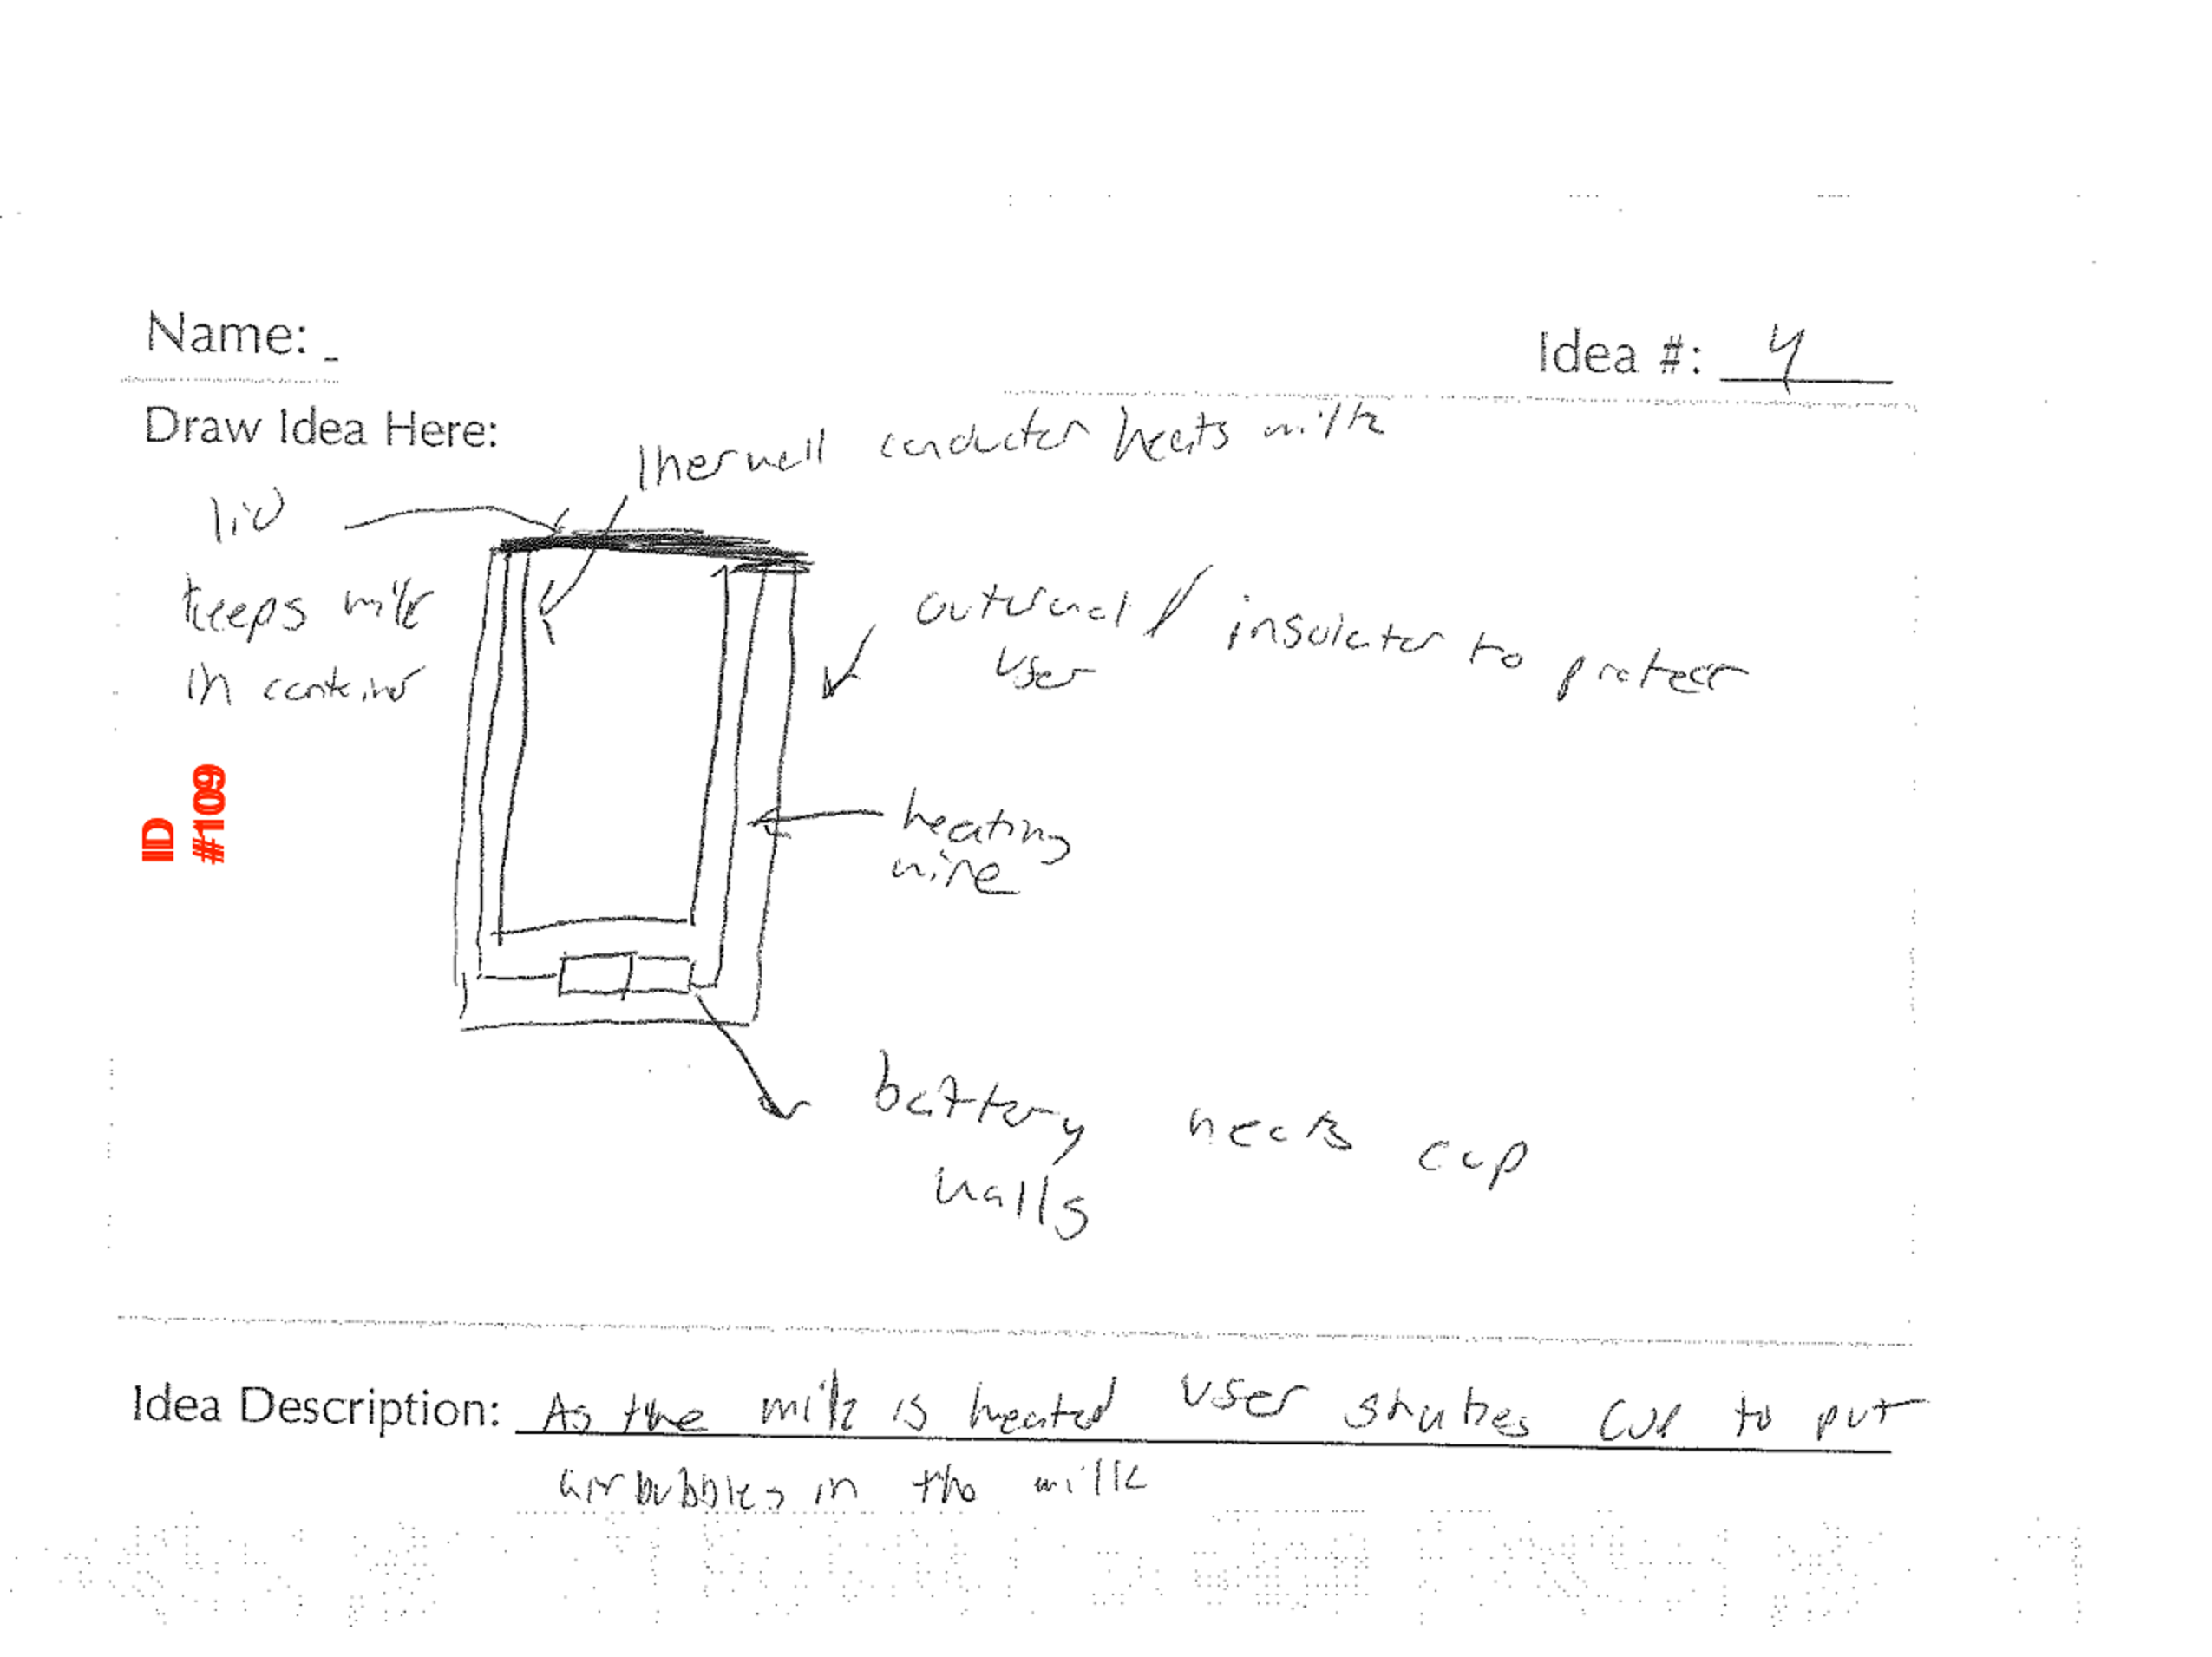 Name:
Idea #: 4
Draw Idea Here:
thermall conductor heats milk
lid
keeps milk
in container
outernal / insulator to protect
user
ID
#109
heating
wire
battery heats cup
walls
Idea Description: As the milk is heated user shakes cup to put
air bubbles in the milk